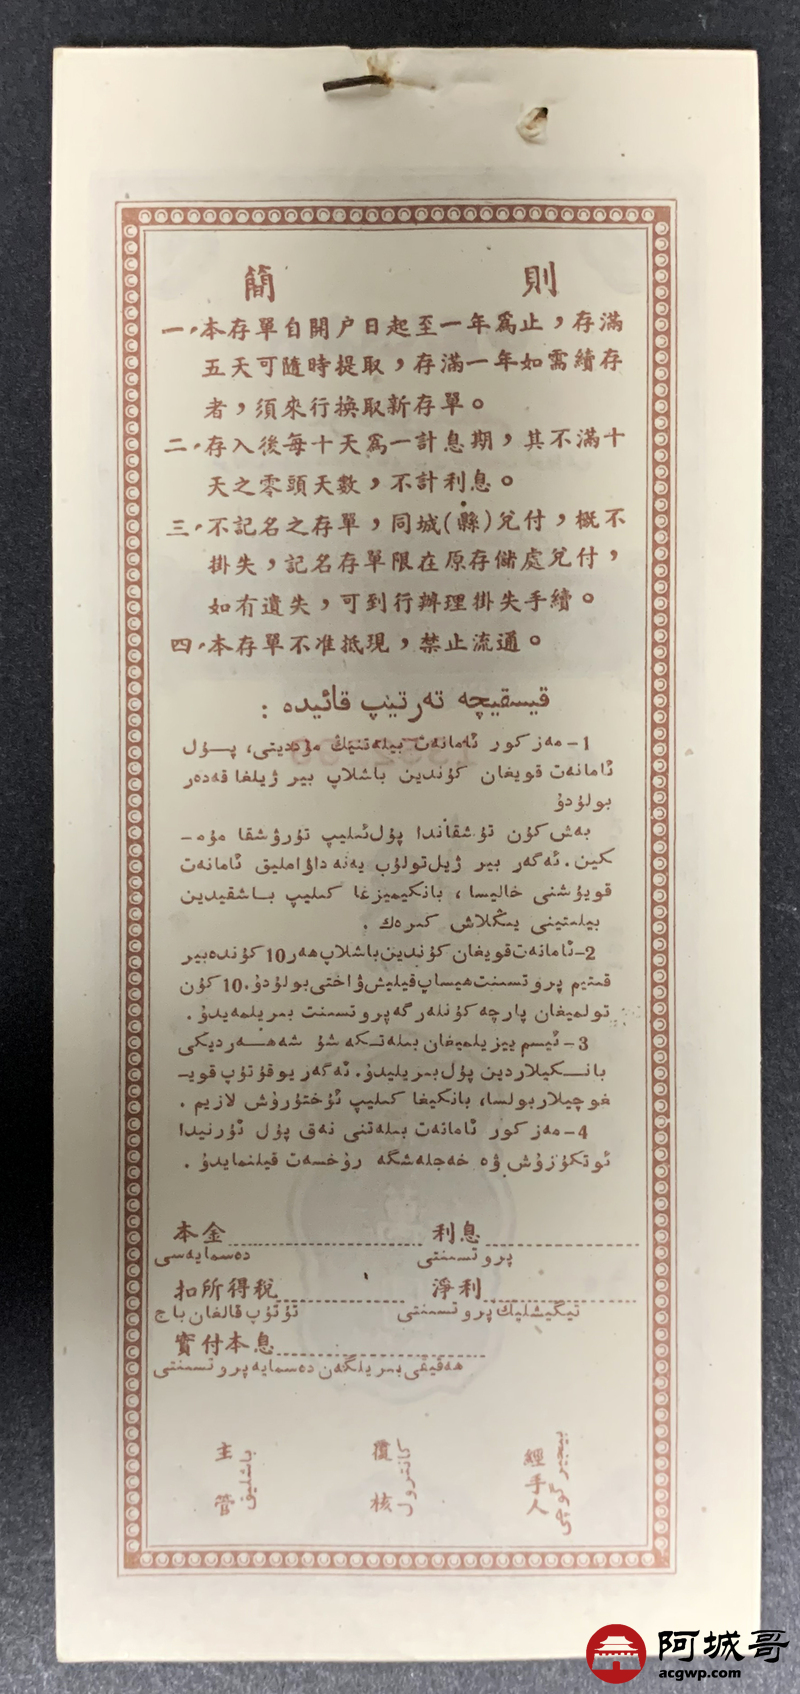 簡 則
一，本存單自開户日起至一年爲止，存滿
五天可隨時提取，存滿一年如需續存
者，須來行換取新存單。
二，存入後每十天爲一計息期，其不滿十
天之零頭天數，不計利息。
三，不記名之存單，同城(縣)兌付，概不
掛失，記名存單限在原存儲處兌付，
如有遺失，可到行辦理掛失手續。
四，本存單不准抵現，禁止流通。
قىسقىچە تەرتىپ قائىدە :
1- مەزكور ئامانەت بىلەتنىڭ مۇددىتى، پۇل
ئامانەت قويغان كۈندىن باشلاپ بىر ژىلغا قەدەر
بولۇدۇ
بەش كۈن توشقاندا پۇل ئىلىپ تۇرۇشقا مۇم-
كىن. ئەگەر بىر ژىل تولۇپ يەنە داۋاملىق ئامانەت
قويۇشنى خالىسا، بانكىمىزغا كىلىپ باشقىدىن
بىلىتىنى يىڭلاش كىرەك .
2- ئامانەت قويغان كۈندىن باشلاپ ھەر 10 كۈندە بىر
قىتىم پروتسىنت ھىساپ قىلىش ۋاختى بولۇدۇ. 10 كۈن
تولمىغان پارچە كۈنلەرگە پروتسىنت بىرىلمەيدۇ.
3- ئىسم يىزىلمىغان بىلەتكە شۇ شەھەردىكى
بانكىلاردىن پۇل بىرىلىدۇ. ئەگەر يوقۇتۇپ قوي-
غوچىلار بولسا، بانكىغا كىلىپ ئۇختۇرۇش لازىم .
4- مەزكور ئامانەت بىلەتنى نەق پۇل ئۇرنىدا
ئوتكۈزۈش ۋە خەجلەشگە رۇخسەت قىلنمايدۇ .
本金 利息
دەسمايەسى پروتسىنتى
扣所得稅 淨利
تۇتۇپ قالغان باج تىگىشلىك پروتسىنتى
實付本息
ھەقىقى بىرىلگەن دەسمايە پروتسىنتى
主管 باشلىق
覆核 كانترول
經手人 بىجىرگۈچى
阿城哥
acgwp.com